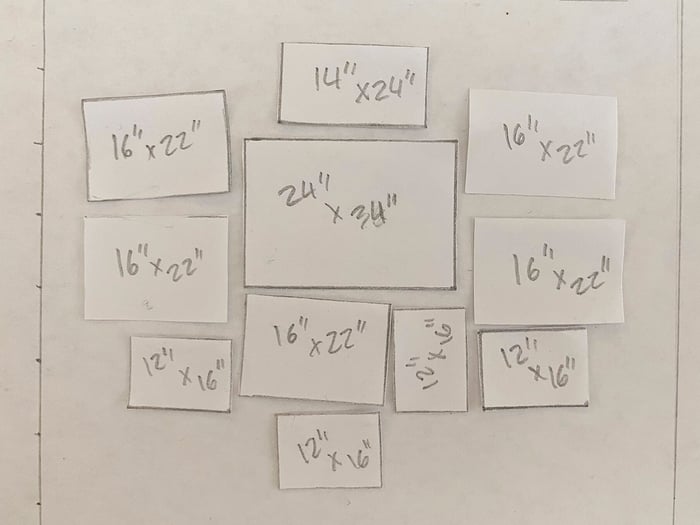 14" x 24"
16" x 22"
16" x 22"
24" x 34"
16" x 22"
16" x 22"
16" x 22"
12" x 16"
12" x 16"
12" x 16"
12" x 16"